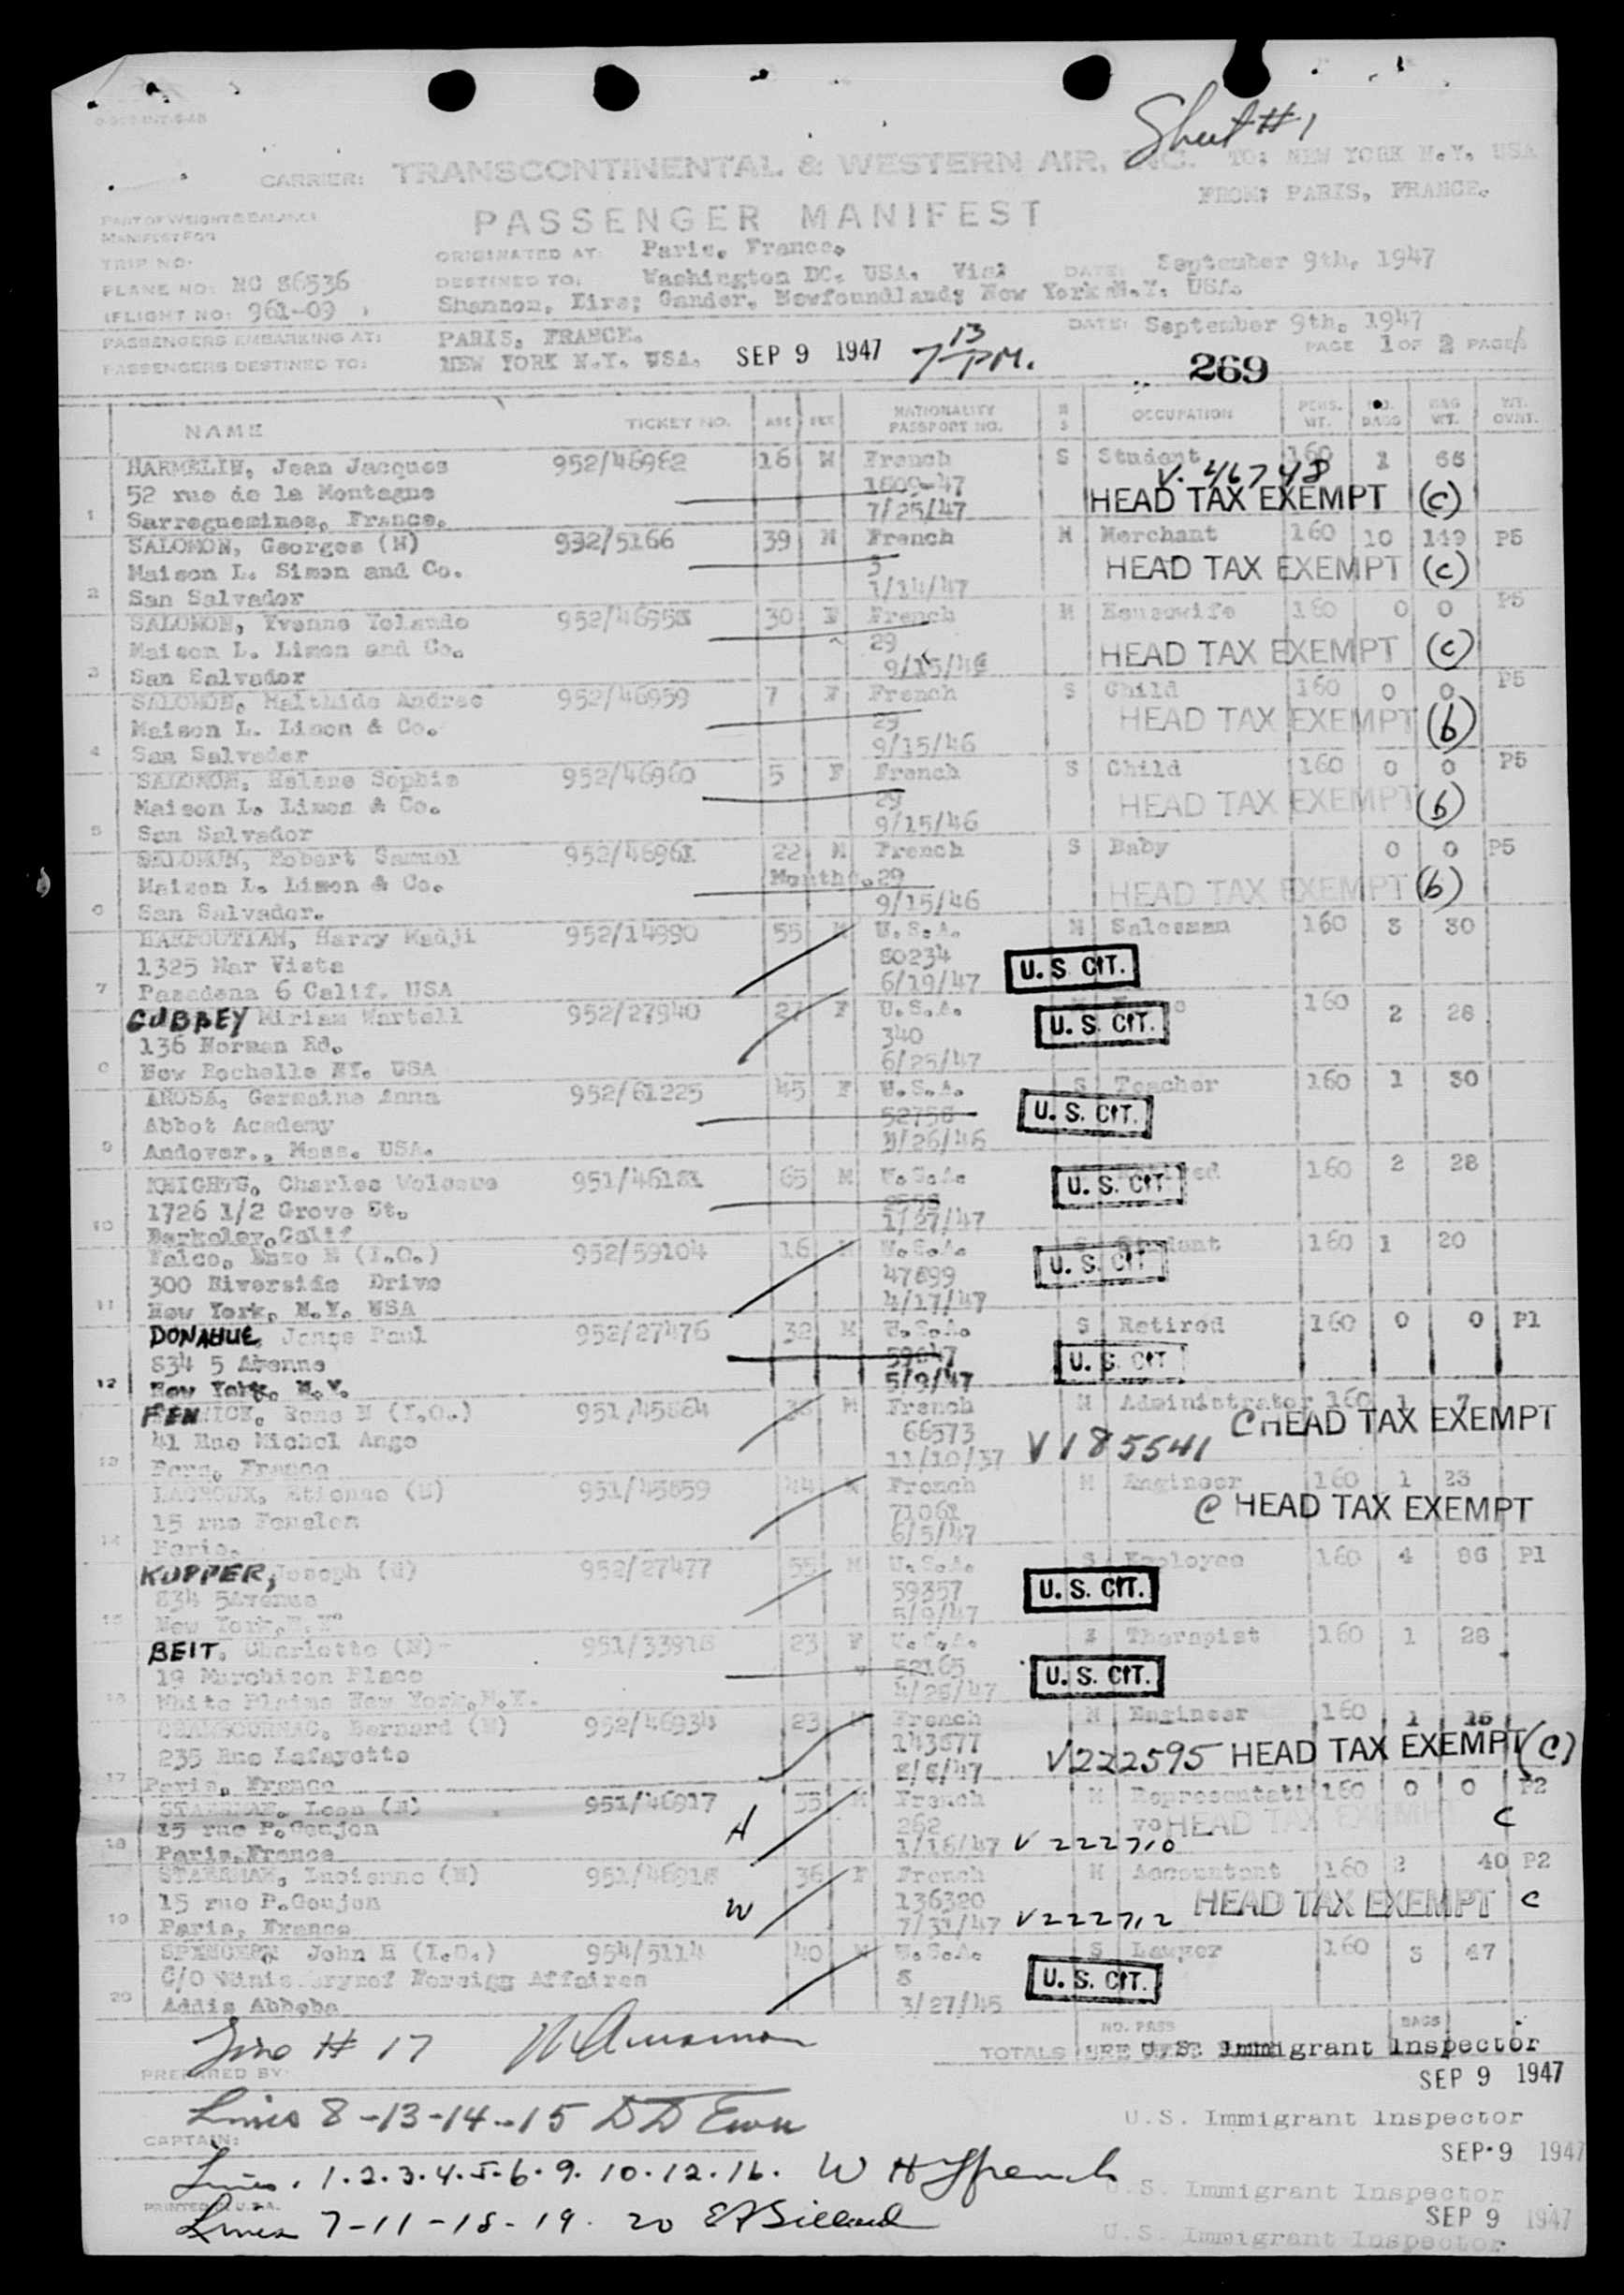 Sheet #1
CARRIER: TRANSCONTINENTAL & WESTERN AIR, INC. TO: NEW YORK N.Y. USA
FROM: PARIS, FRANCE.
PART OF WEIGHT & BALANCE
MANIFEST FOR
PASSENGER MANIFEST
TRIP NO.
ORIGINATED AT: Paris, France.
PLANE NO: NC 86536 DESTINED TO: Washington DC. USA. Via: DATE: September 9th, 1947
FLIGHT NO: 961-09 Shannon, Eire; Gander, Newfoundland; New York N.Y. USA.
PASSENGERS EMBARKING AT: PARIS, FRANCE. DATE: September 9th, 1947
PASSENGERS DESTINED TO: NEW YORK N.Y. USA. SEP 9 1947 7 13 PM. PAGE 1 OF 2 PAGES
269
NAME TICKET NO. AGE SEX NATIONALITY PASSPORT NO. M S OCCUPATION PERS. WT. NO. BAGG BAG WT. WT. OVRT.
HARMELIN, Jean Jacques 952/46962 16 M French S Student 160 1 66
52 rue de la Montagne 1809-47 V. 46748
1 Sarreguemines, France. 7/25/47 HEAD TAX EXEMPT (c)
SALOMON, Georges (N) 932/5166 39 M French M Merchant 160 10 149 P5
Maison L. Simon and Co. 3 HEAD TAX EXEMPT (c)
2 San Salvador 1/14/47
SALOMON, Yvonne Yolande 952/46958 30 F French M Housewife 160 0 0 P5
Maison L. Limon and Co. 29 HEAD TAX EXEMPT (c)
3 San Salvador 9/15/46
SALOMON, Malthide Andree 952/46959 7 F French S Child 160 0 0 P5
Maison L. Limon & Co. 29 HEAD TAX EXEMPT (b)
4 San Salvador 9/15/46
SALOMON, Helene Sophie 952/46960 5 F French S Child 160 0 0 P5
Maison L. Limon & Co. 29 HEAD TAX EXEMPT (b)
5 San Salvador 9/15/46
SALOMON, Robert Samuel 952/46961 22 M French S Baby 0 0 P5
Maison L. Limon & Co. Months. 29 HEAD TAX EXEMPT (b)
6 San Salvador. 9/15/46
HARPOUTIAN, Harry Madji 952/14990 55 M U.S.A. M Salesman 160 3 30
1325 Mar Vista 80234 U. S. CIT.
7 Pasadena 6 Calif. USA 6/19/47
GUBBEY Miriam Wartell 952/27940 27 F U.S.A. 160 2 28
136 Norman Rd. 340 U. S. CIT.
8 New Rochelle NY. USA 6/25/47
AROSA, Germaine Anna 952/61225 45 F U.S.A. S Teacher 160 1 30
Abbot Academy 52758 U. S. CIT.
9 Andover., Mass. USA. /26/46
KNIGHTS, Charles 951/4618 65 M U.S.A. 160 2 28
1726 1/2 Grove St. U. S. CIT
10 Berkeley, Calif 1/27/47
Falco, Enzo N (I.O.) 952/59104 16 M U.S.A. S Student 160 1 20
300 Riverside Drive 47899 U. S. CIT
11 New York, N.Y. USA 4/17/47
DONAHUE, Paul 952/27476 32 M U.S.A. S Retired 160 0 0 P1
834 5 Avenue U. S. CIT
12 New York, N.Y. 5/9/47
Rene N (I.O.) 951/45864 38 M French M Administrator 160 1 7
41 Rue Michel Ange 66573 V185541 C HEAD TAX EXEMPT
13 France 11/10/37
LACROUX, Etienne 951/45859 44 M French M Engineer 160 1 23
15 rue Fenelon 71061 C HEAD TAX EXEMPT
14 Paris. 6/5/47
KUPPER, Joseph 952/27477 55 M U.S.A. S Employee 160 4 86 P1
834 5Avenue 59357 U. S. CIT.
15 New York, N.Y. 5/9/47
BEIT, Charlotte (N) 951/33918 23 F U.S.A. S Therapist 160 1 28
19 Murchison Place 52165 U. S. CIT.
16 White Plains New York, N.Y. 4/28/47
Bernard (N) 952/46934 23 M French M Engineer 160 1 15
235 Rue Lafayette 143677 V222595 HEAD TAX EXEMPT (C)
17 Paris, France 8/8/47
Leon (N) 951/46917 35 M French M Representati 160 0 0 P2
15 rue P.Goujon H 262 ve HEAD TAX EXEMPT C
18 Paris, France 1/16/47 V 222710
Lucienne (N) 951/46918 36 F French M Accountant 160 2 40 P2
15 rue P.Goujon W 136320 HEAD TAX EXEMPT C
19 Paris, France 7/31/47 V222712
SPENCER, John H (I.O.) 954/5114 40 M U.S.A. S Lawyer 160 3 47
C/O Ministry of Foreign Affaires 8 U. S. CIT.
20 Addis Abbeba 3/27/45
Line # 17
NO. PASS BAGS
TOTALS U.S. Immigrant Inspector
PREPARED BY: SEP 9 1947
Lines 8-13-14-15
U.S. Immigrant Inspector
CAPTAIN: SEP 9 1947
Lines. 1.2.3.4.5.6.9.10.12.16. W H
U.S. Immigrant Inspector
PRINTED IN U.S.A. SEP 9 1947
Lines 7-11-18-19. 20
U.S. Immigrant Inspector